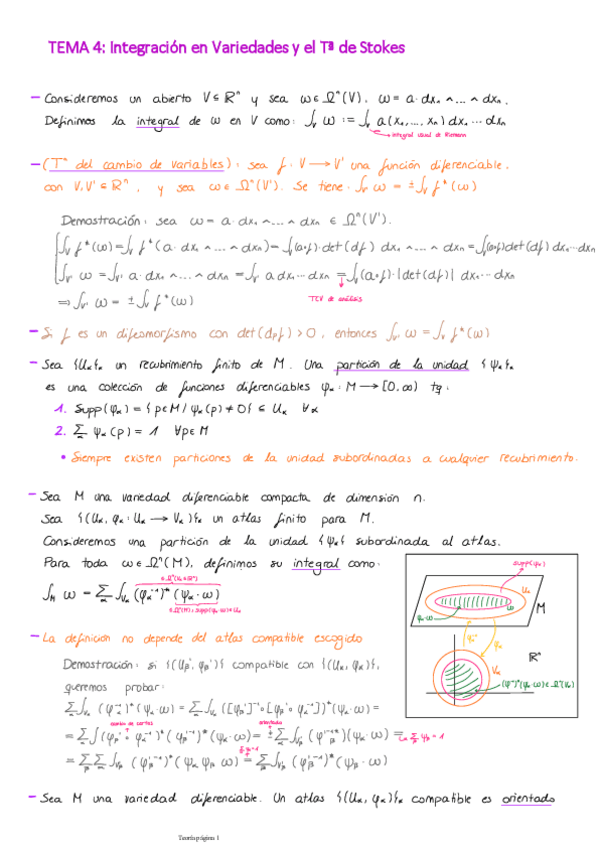 TEMA 4: Integración en Variedades y el Tª de Stokes
– Consideremos un abierto V ⊆ ℝⁿ y sea ω ∈ Ωⁿ(V), ω = a · dx₁ ∧ ... ∧ dxₙ.
Definimos la integral de ω en V como: ∫_V ω := ∫_V a(x₁, ..., xₙ) dx₁ ··· dxₙ
→ integral usual de Riemann
– (Tª del cambio de variables): sea f: V → V' una función diferenciable,
con V, V' ⊆ ℝⁿ, y sea ω ∈ Ωⁿ(V'). Se tiene: ∫_V' ω = ± ∫_V f*(ω)
Demostración: sea ω = a · dx₁ ∧ ... ∧ dxₙ ∈ Ωⁿ(V').
∫_V f*(ω) = ∫_V f*(a · dx₁ ∧ ... ∧ dxₙ) = ∫_V (a∘f) · det(df) dx₁ ∧ ... ∧ dxₙ = ∫_V (a∘f) det(df) dx₁ ··· dxₙ
∫_V' ω = ∫_V' a · dx₁ ∧ ... ∧ dxₙ = ∫_V' a dx₁ ··· dxₙ = ∫_V (a∘f) · |det(df)| dx₁ ··· dxₙ
⇒ ∫_V' ω = ± ∫_V f*(ω)
TCV de análisis
– Si f es un difeomorfismo con det(d_p f) > 0, entonces ∫_V' ω = ∫_V f*(ω)
– Sea {Uα}α un recubrimiento finito de M. Una partición de la unidad {ψα}α
es una colección de funciones diferenciables ψα: M → [0, ∞) tq:
1. Supp(ψα) = {p ∈ M / ψα(p) ≠ 0} ⊆ Uα ∀α
2. Σ_α ψα(p) = 1 ∀p ∈ M
• Siempre existen particiones de la unidad subordinadas a cualquier recubrimiento.
– Sea M una variedad diferenciable compacta de dimensión n.
Sea {(Uα, φα: Uα → Vα)}α un atlas finito para M.
Consideremos una partición de la unidad {ψα} subordinada al atlas.
Para toda ω ∈ Ωⁿ(M), definimos su integral como:
∫_M ω = Σ_α ∫_Vα (φα⁻¹)*(ψα · ω)
supp(ψα)
Uα
ω
M
ψα·ω
φα⁻¹
φα
ℝⁿ
Vα
(φ⁻¹)*(ψα ω) ∈ Ωⁿ(Vα)
– La definición no depende del atlas compatible escogido
Demostración: si {(U'β, φ'β)} compatible con {(Uα, φα)},
queremos probar:
Σ_α ∫_Vα (φα⁻¹)*(ψα · ω) = Σ_α ∫_Vα ([φ'β]⁻¹ ∘ [φ'β ∘ φα⁻¹])*(ψα · ω) =
cambio de cartas
orientado
= Σ_α ∫ (φ'β ∘ φα⁻¹)* (φ'β⁻¹)* (ψα · ω) = ± Σ_α ∫_V'β (φ'β⁻¹)*(ψα · ω) =
Σ_β ψβ = 1
= Σ_β Σ_α ∫_V'β (φ'β⁻¹)* (ψα ψβ ω) = Σ_β ∫_V'β (φ'β⁻¹)* (ψβ · ω)
– Sea M una variedad diferenciable. Un atlas {(Uα, φα)}α compatible es orientado
Teoría página 1